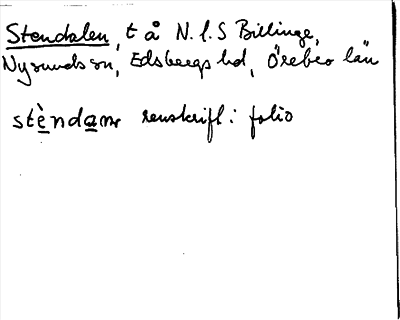 Stendalen, t å N. l. S Billinge,
Nysunds sn, Edsbergs hd, Örebro län
stèndanɐ renskrift i folio